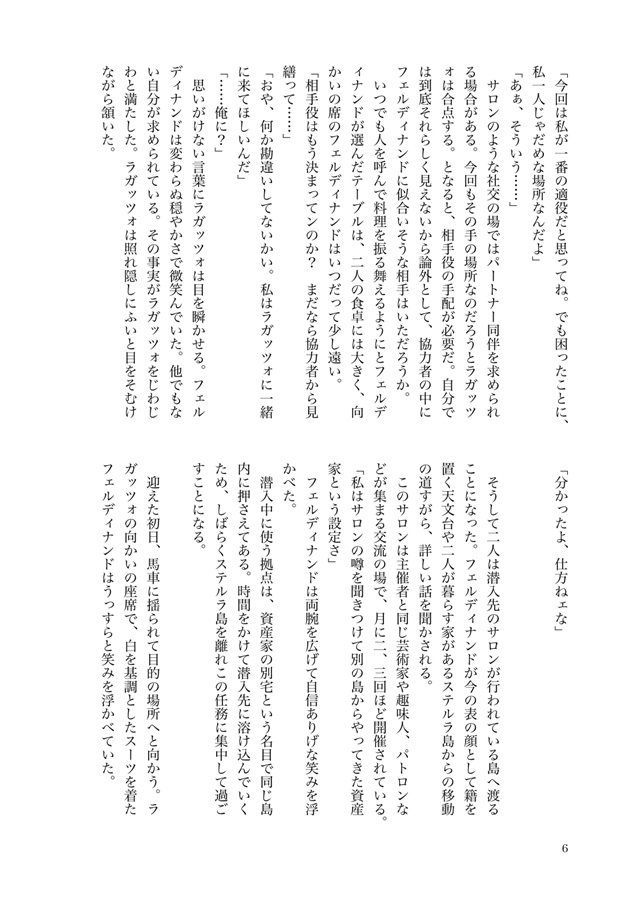 「今回は私が一番の適役だと思ってね。でも困ったことに、
私一人じゃだめな場所なんだよ」
「あぁ、そういう……」
　サロンのような社交の場ではパートナー同伴を求められ
る場合がある。今回もその手の場所なのだろうとラガッツ
ォは合点する。となると、相手役の手配が必要だ。自分で
は到底それらしく見えないから論外として、協力者の中に
フェルディナンドに似合いそうな相手はいただろうか。
　いつでも人を呼んで料理を振る舞えるようにとフェルデ
ィナンドが選んだテーブルは、二人の食卓には大きく、向
かいの席のフェルディナンドはいつだって少し遠い。
「相手役はもう決まってンのか？　まだなら協力者から見
繕って……」
「おや、何か勘違いしてないかい。私はラガッツォに一緒
に来てほしいんだ」
「……俺に？」
　思いがけない言葉にラガッツォは目を瞬かせる。フェル
ディナンドは変わらぬ穏やかさで微笑んでいた。他でもな
い自分が求められている。その事実がラガッツォをじわじ
わと満たした。ラガッツォは照れ隠しにふいと目をそむけ
ながら頷いた。
「分かったよ、仕方ねェな」
　そうして二人は潜入先のサロンが行われている島へ渡る
ことになった。フェルディナンドが今の表の顔として籍を
置く天文台や二人が暮らす家があるステルラ島からの移動
の道すがら、詳しい話を聞かされる。
　このサロンは主催者と同じ芸術家や趣味人、パトロンな
どが集まる交流の場で、月に二、三回ほど開催されている。
「私はサロンの噂を聞きつけて別の島からやってきた資産
家という設定さ」
　フェルディナンドは両腕を広げて自信ありげな笑みを浮
かべた。
　潜入中に使う拠点は、資産家の別宅という名目で同じ島
内に押さえてある。時間をかけて潜入先に溶け込んでいく
ため、しばらくステルラ島を離れこの任務に集中して過ご
すことになる。
　迎えた初日、馬車に揺られて目的の場所へと向かう。ラ
ガッツォの向かいの座席で、白を基調としたスーツを着た
フェルディナンドはうっすらと笑みを浮かべていた。
6